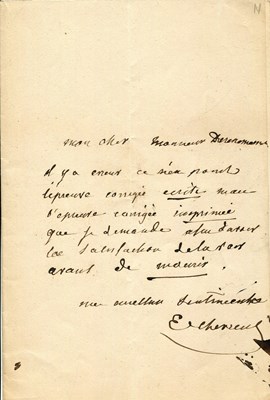 mon cher Monsieur
il y a erreur ce n'est point
l'épreuve corrigée écrite mais
l'épreuve corrigée imprimée
que je demande afin d'avoir
la satisfaction de la voir
avant de mourir.
sentiments
E Chevreul